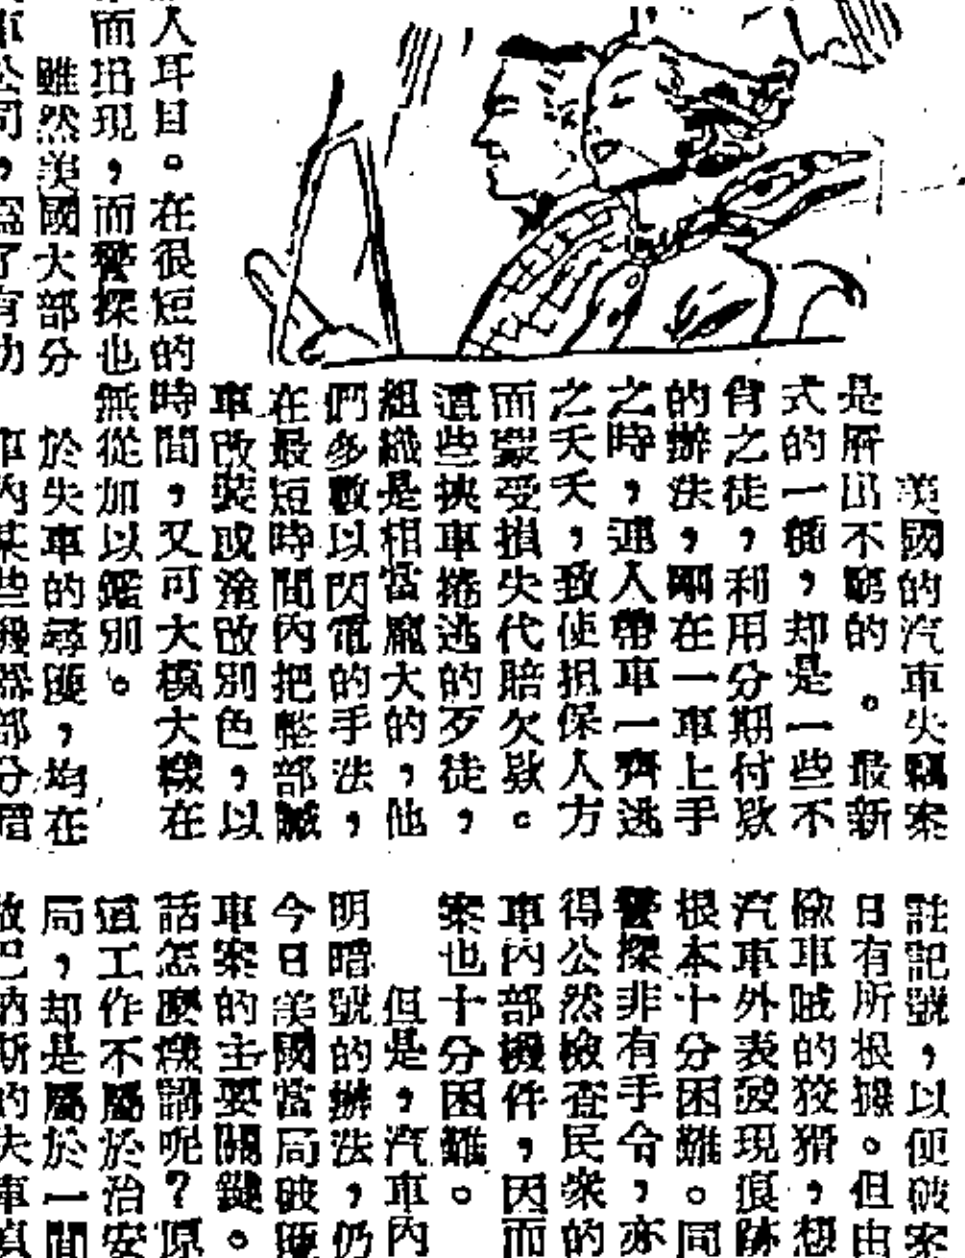 美國的汽車失竊案
是層出不窮的。最新
式的一種，却是一些不
肖之徒，利用分期付欵
的辦法，剛在一車上手
之時，連人帶車一齊逃
之夭夭，致使担保人方
而蒙受損失代賠欠欵。
這些挾車捲逃的歹徒，
組織是相當龐大的，他
們多數以閃電的手法，
在最短時間內把整部贓
車改裝或塗改別色，以
人耳目。在很短的時間，又可大模大樣在
而出現，而警探也無從加以鑑別。
雖然美國大部分
於失車的尋獲，均在
車公司，為了有功
車內某些機器部分
註記號，以便破案
日有所根據。但由
偸車賊的狡猾，想
汽車外表發現痕跡
根本十分困難。同
警探非有手令，亦
得公然檢查民衆的
車內部機件，因而
案也十分困難。
但是，汽車內
明暗號的辦法，仍
今日美國當局破獲
車案的主要關鍵。
話怎麽樣講呢？原
道工作不屬於治安
局，却是屬於一間
的失車